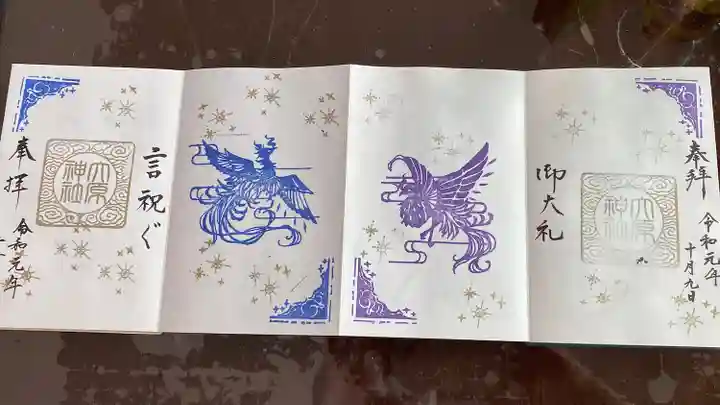 奉拝
令和元年
十月九日
大原神社
御大礼
言祝ぐ
大原神社
奉拝
令和元年